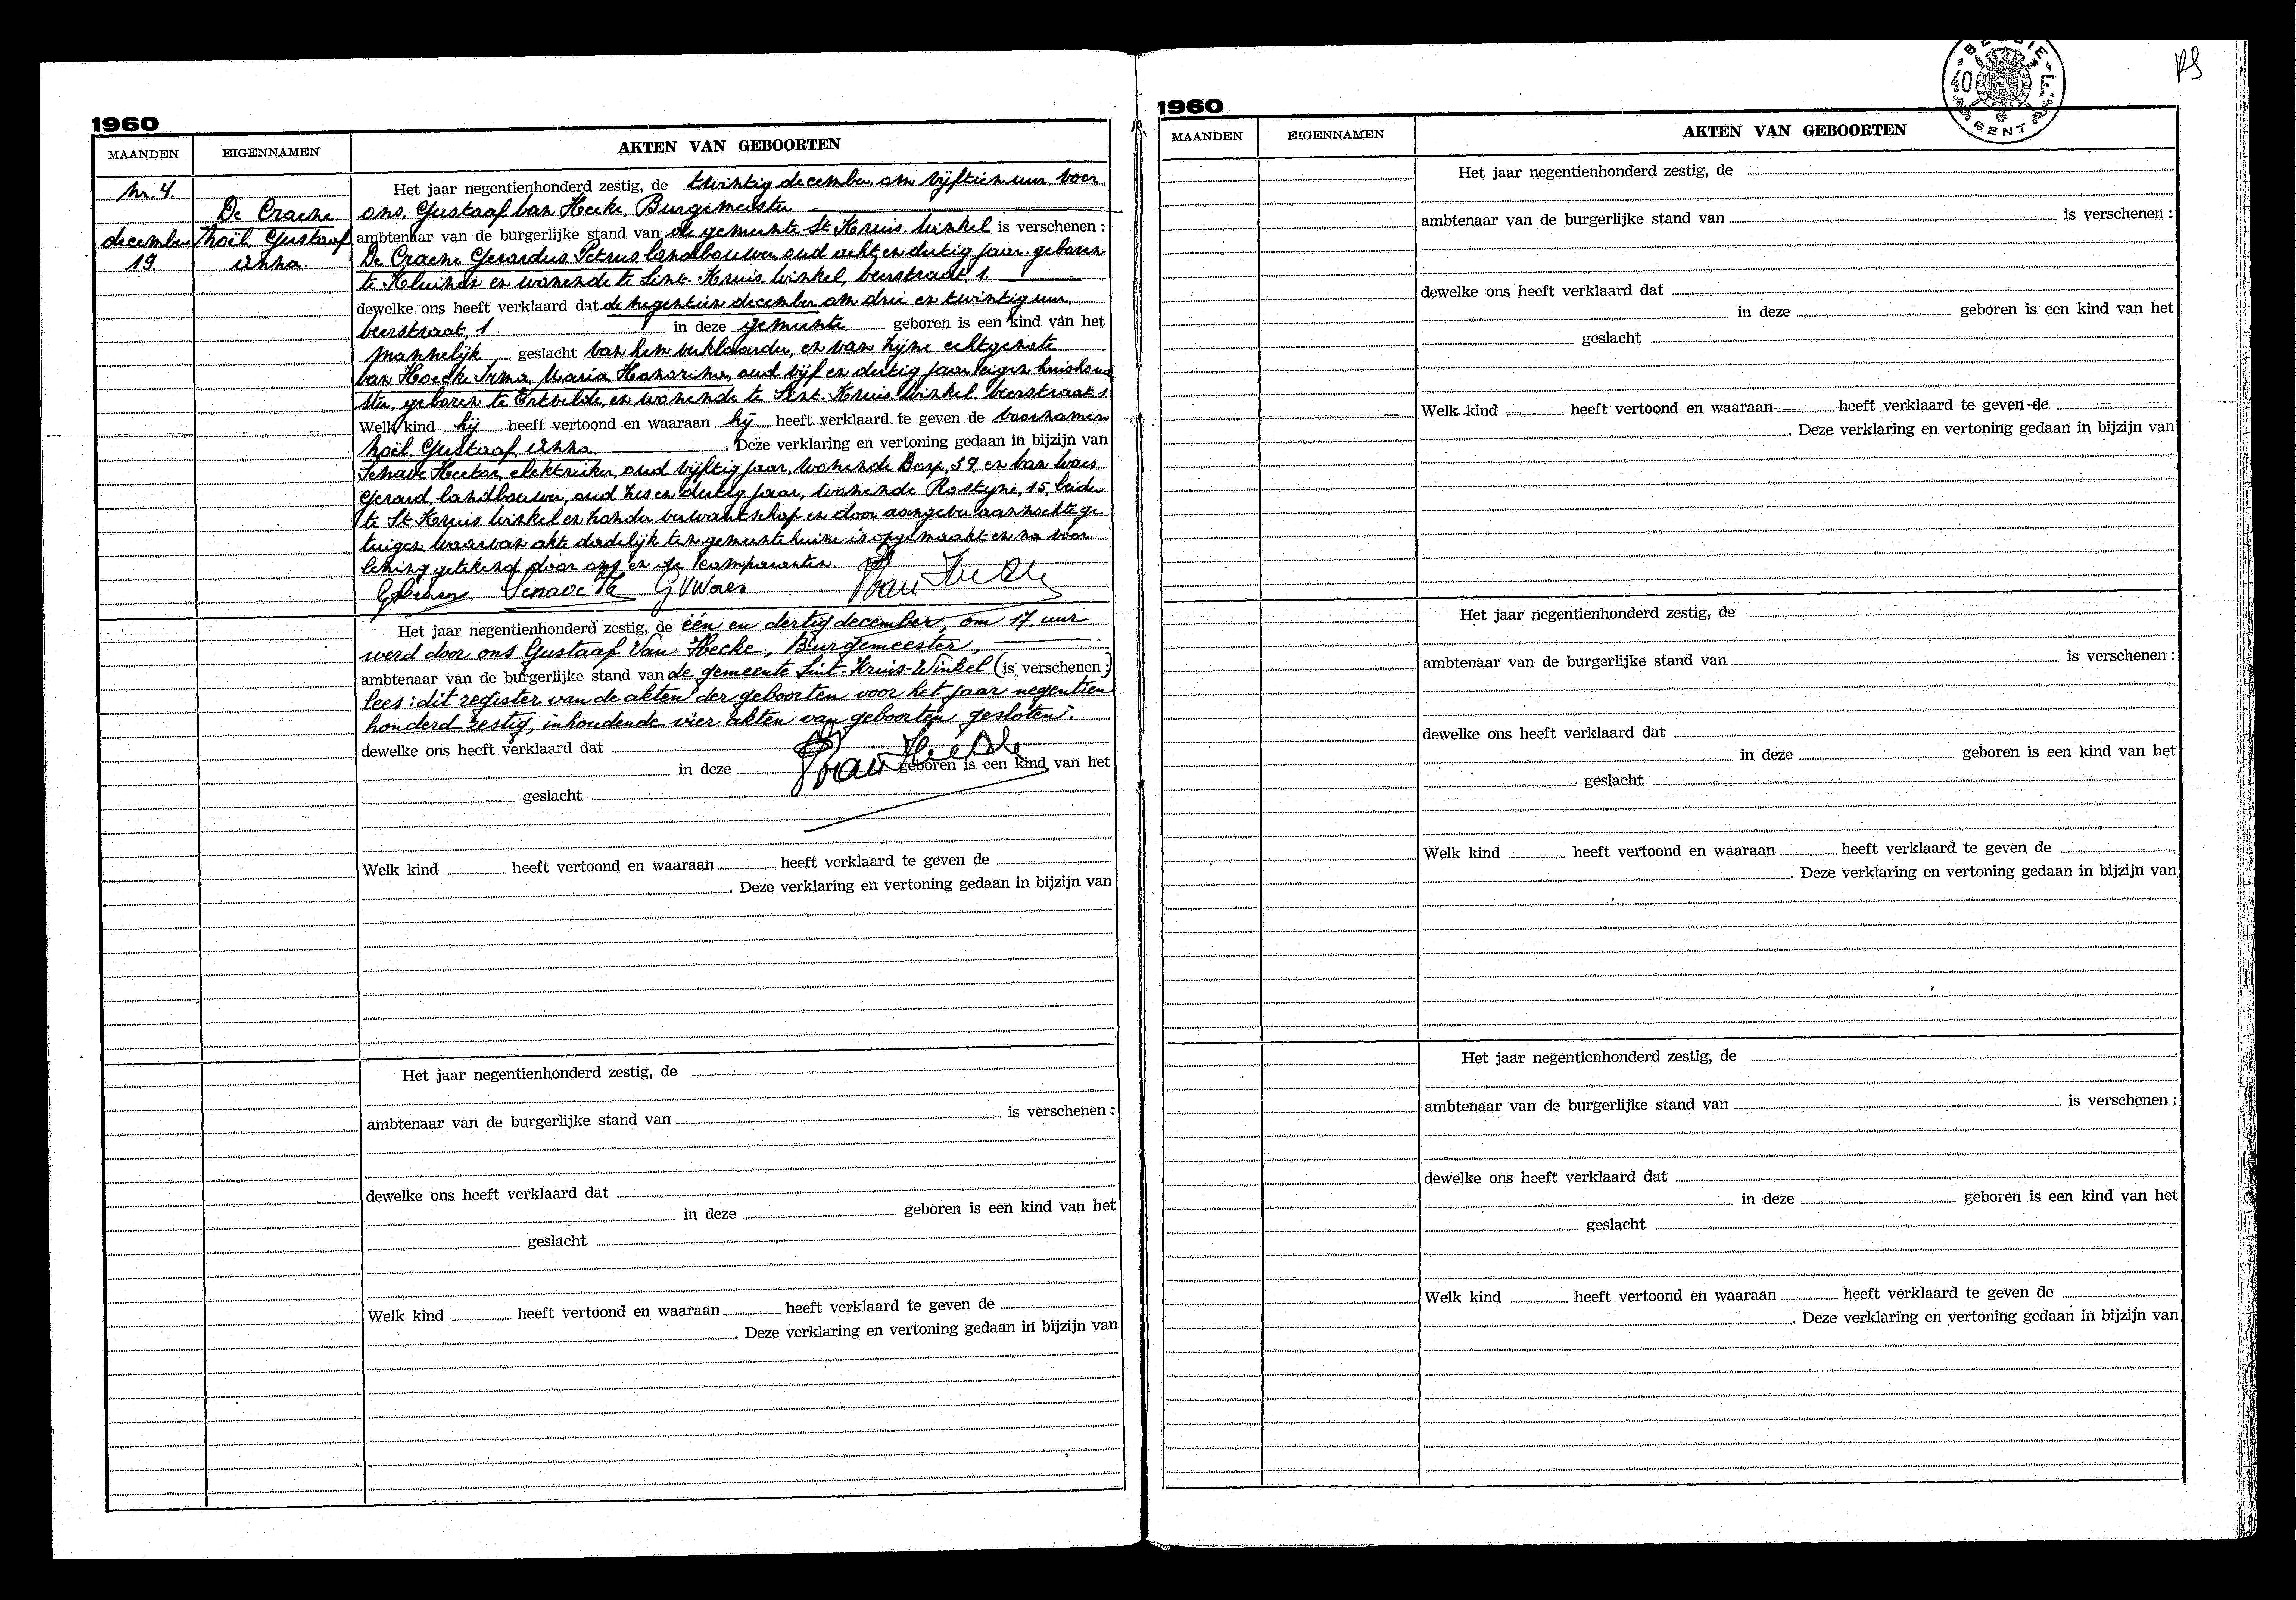 1960
MAANDEN EIGENNAMEN AKTEN VAN GEBOORTEN
Nr. 4.
De Craene
december Noël, Gustaaf
19. Anna.
Het jaar negentienhonderd zestig, de twintig december om vijftien uur, voor
ons, Gustaaf Van Hecke, Burgemeester
ambtenaar van de burgerlijke stand van de gemeente St Kruis-Winkel is verschenen :
De Craene Gerardus Petrus landbouwer oud acht en dertig jaar, geboren
te Kluizen en wonende te Sint-Kruis-Winkel, beerstraat 1.
dewelke ons heeft verklaard dat de negentien december om drie en twintig uur,
beerstraat, 1 in deze gemeente geboren is een kind van het
mannelijk geslacht van hem verklaarder, en van zijne echtgenote
Van Hoecke Irma, Maria Honorina, oud vijf en dertig jaar, eigen huishoud
ster, geboren te Ertvelde, en wonende te Sint-Kruis-Winkel, beerstraat 1
Welk kind hij heeft vertoond en waaraan hij heeft verklaard te geven de voornamen
Noël, Gustaaf Anna. Deze verklaring en vertoning gedaan in bijzijn van
Senave Hector, elektrieker, oud vijftig jaar, wonende Dorp, 39 en Van Waes
Gerard, landbouwer, oud zes en dertig jaar, wonende Rostyne, 15, beide
te St Kruis-Winkel en zonder verwantschap en door aangever aanzochte ge
tuigen waarvan akte dadelijk ten gemeentehuize is opgemaakt en na voor
lezing getekend door ons en de komparanten.
Senave H GVWaes Van Hecke
Het jaar negentienhonderd zestig, de één en dertig december, om 17 uur
werd door ons Gustaaf Van Hecke, Burgemeester,
ambtenaar van de burgerlijke stand van de gemeente Sint-Kruis-Winkel (is verschenen :)
lees: dit register van de akten der geboorten voor het jaar negentien
honderd zestig, inhoudende vier akten van geboorten gesloten.
dewelke ons heeft verklaard dat
Van Hecke
in deze geboren is een kind van het
geslacht
Welk kind heeft vertoond en waaraan heeft verklaard te geven de
. Deze verklaring en vertoning gedaan in bijzijn van
Het jaar negentienhonderd zestig, de
ambtenaar van de burgerlijke stand van is verschenen :
dewelke ons heeft verklaard dat
in deze geboren is een kind van het
geslacht
Welk kind heeft vertoond en waaraan heeft verklaard te geven de
. Deze verklaring en vertoning gedaan in bijzijn van
BELGIE
40 F.
GENT
1960
MAANDEN EIGENNAMEN AKTEN VAN GEBOORTEN
Het jaar negentienhonderd zestig, de
ambtenaar van de burgerlijke stand van is verschenen :
dewelke ons heeft verklaard dat
in deze geboren is een kind van het
geslacht
Welk kind heeft vertoond en waaraan heeft verklaard te geven de
. Deze verklaring en vertoning gedaan in bijzijn van
Het jaar negentienhonderd zestig, de
ambtenaar van de burgerlijke stand van is verschenen :
dewelke ons heeft verklaard dat
in deze geboren is een kind van het
geslacht
Welk kind heeft vertoond en waaraan heeft verklaard te geven de
. Deze verklaring en vertoning gedaan in bijzijn van
Het jaar negentienhonderd zestig, de
ambtenaar van de burgerlijke stand van is verschenen :
dewelke ons heeft verklaard dat
in deze geboren is een kind van het
geslacht
Welk kind heeft vertoond en waaraan heeft verklaard te geven de
. Deze verklaring en vertoning gedaan in bijzijn van